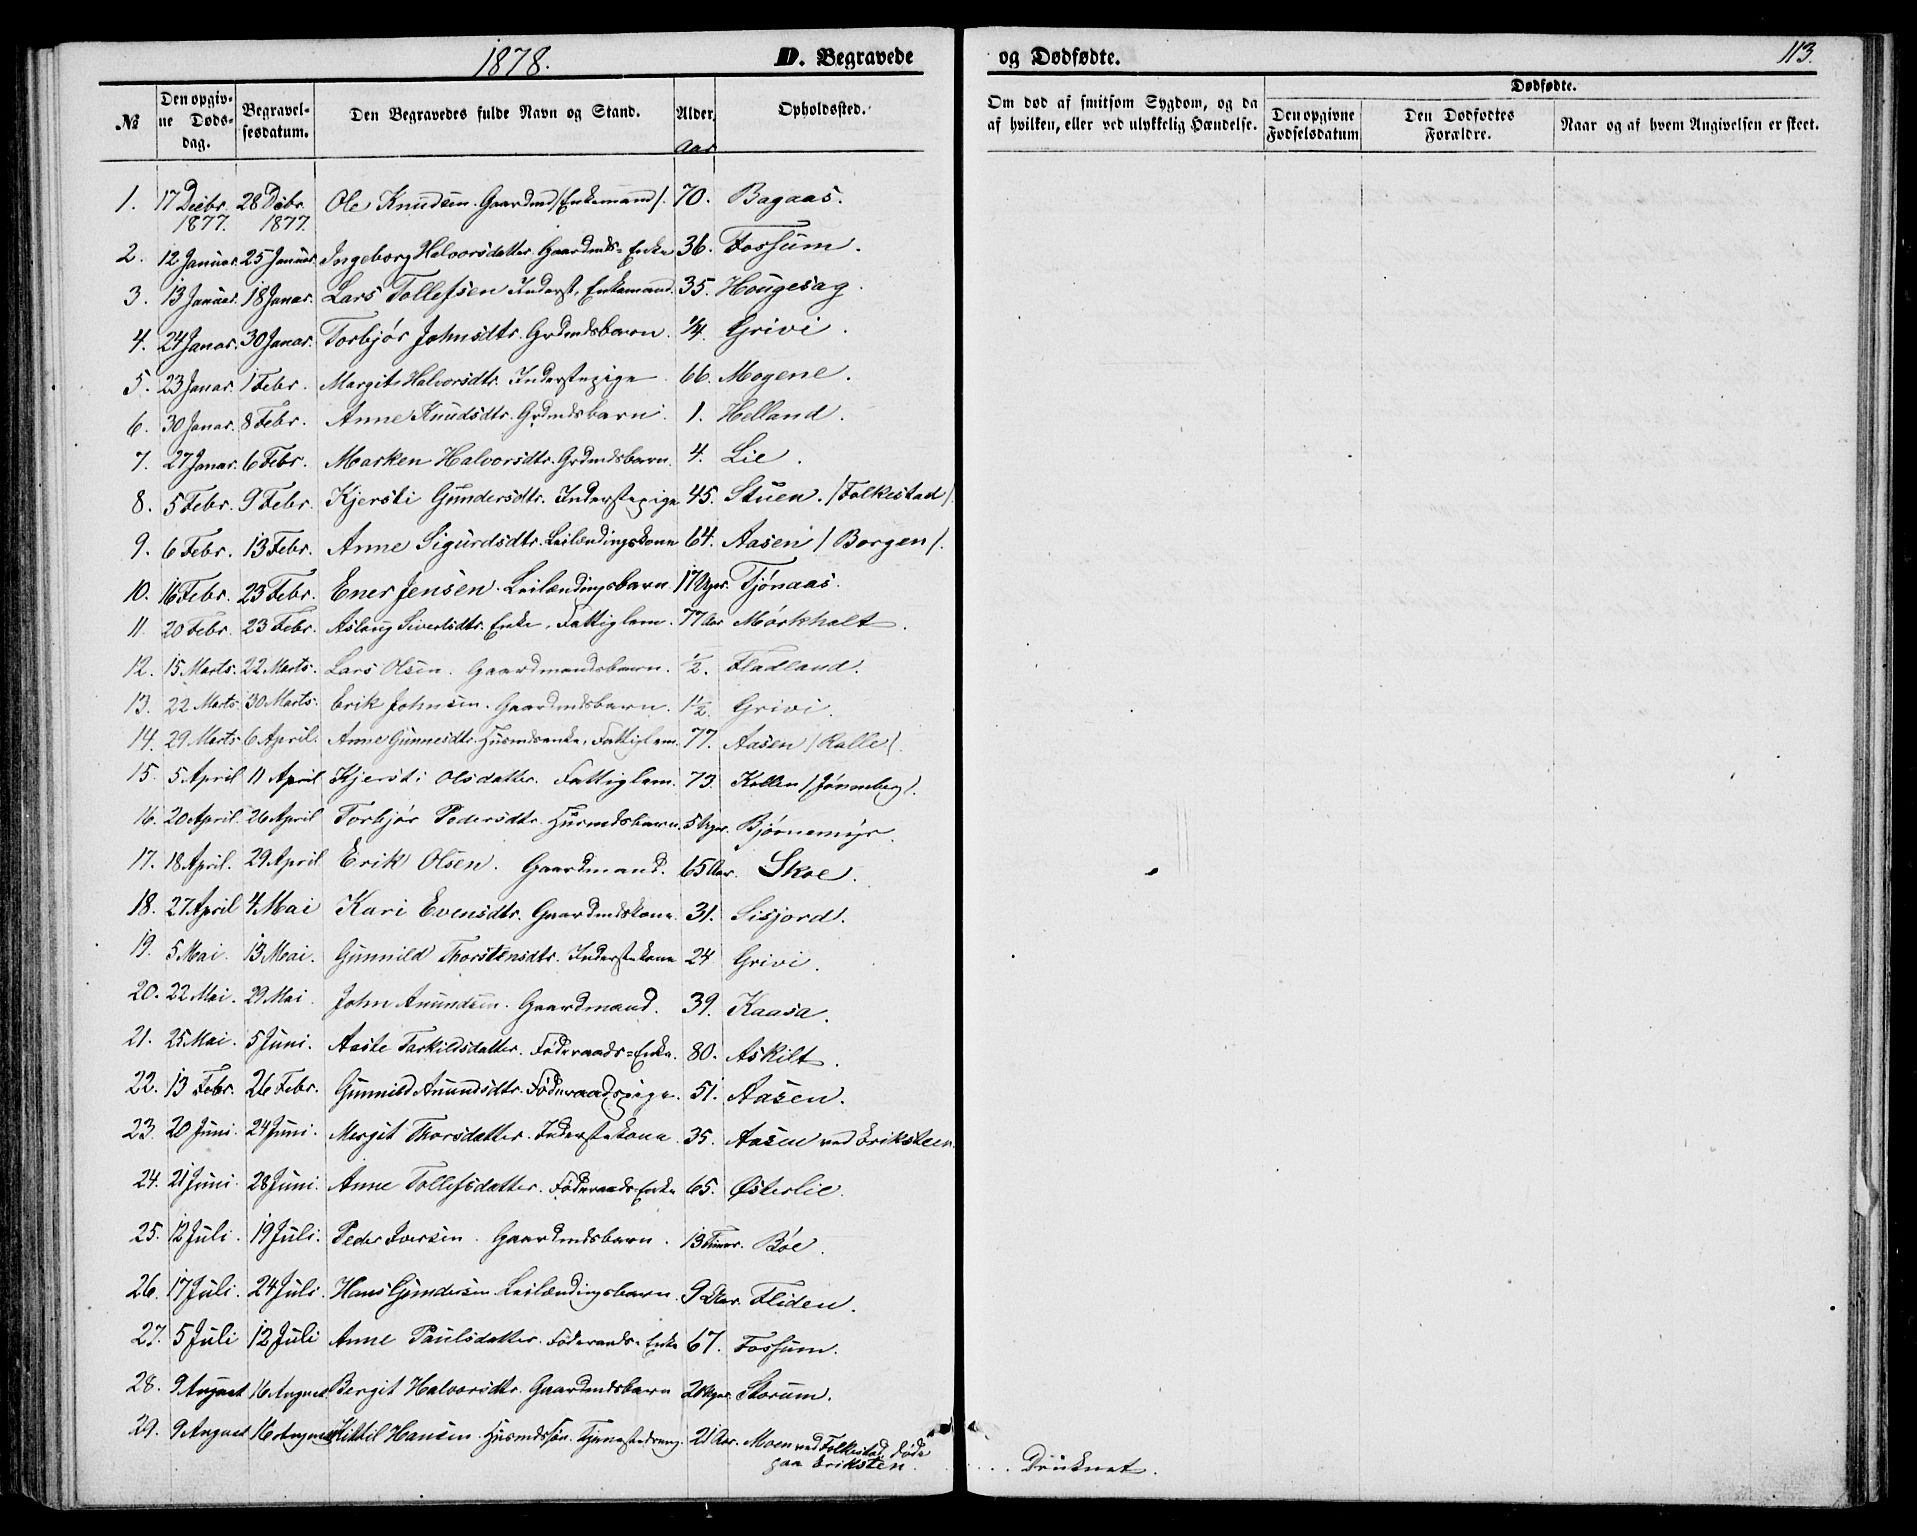 1878.
D. Begravede og Dødfødte.
113.
№ | Den opgivne Dødsdag. | Begravelsesdatum. | Den Begravedes fulde Navn og Stand. | Alder, Aar | Opholdssted. | Om død af smitsom Sygdom, og da af hvilken, eller ved ulykkelig Hændelse. | Dødfødte. Den opgivne Fødselsdatum | Den Dødfødtes Forældre. | Naar og af hvem Angivelsen er skeet.
1. 17 Decbr. 1877. 28 Decbr. 1877. Ole Knudsen. Gaardmd /Enkemand/. 70. Bagaas.
2. 12 Januar. 25 Januar. Ingeborg Halvorsdatter. Gaardmds=Enke 36. Fossum.
3. 13 Januar. 18 Januar. Lars Tollefsen Inderst, Enkemand. 35. Hougesag.
4. 24 Januar. 30 Januar. Torbjør Johnsdtr. Grdmdsbarn. 1/4. Grivi.
5. 23 Januar. 1 Febr. Margit Halvorsdtr. Inderstepige 66. Mogene.
6. 30 Januar. 8 Febr. Anne Knudsdtr. Grdmdsbarn. 1. Helland.
7. 27 Januar. 6 Febr. Marken Halvorsdtr. Grdmdsbarn. 4. Lie.
8. 5 Febr. 9 Febr. Kjersti Gundersdtr. Inderstepige 45. Stuen. /Folkestad/.
9. 6 Febr. 13 Febr. Anne Sigurdsdtr. Leilændingskone 64. Aasen /Borgen/.
10. 16 Febr. 23 Febr. Ener Jensen. Leilændingsbarn. 17 Uger. Tjønaas.
11. 20 Febr. 23 Febr. Aslaug Sivertsdtr. Enke, Fattiglem. 77 Aar Mørkholt.
12. 15 Marts. 22 Marts. Lars Olsen. Gaardmandsbarn. 1/2. Fladland.
13. 22 Marts 30 Marts. Erik Johnsen. Gaardmdsbarn. 1 1/2. Grivi.
14. 29 Marts 6 April. Anne Gunnesdtr. Husmdsenke, Fattiglem. 77. Aasen /Kalle/.
15. 5 April 11 April Kjersti Olsdatter. Fattiglem. 73. Kollen /Jønneberg/.
16. 20 April. 26 April Torbjør Pedersdtr. Husmdsbarn. 5 Uger. Bjørnemyr.
17. 18 April. 29 April Erik Olsen. Gaardmand. 65 Aar. Skoe.
18. 27 April 4 Mai Kari Evensdtr. Gaardmdskone. 31. Sisjord.
19. 5 Mai. 13 Mai. Gunnild Thorstensdtr. Inderstekone 24 Grivi.
20. 22 Mai. 29 Mai. John Anundsen. Gaardmand. 39. Kaasa.
21. 25 Mai. 5 Juni. Aaste Tarkildsdatter. Føderaads=Enke. 80. Askilt.
22. 13 Febr. 26 Febr. Gunnild Anundsdtr. Føderaadspige. 51. Aasen.
23. 20 Juni. 24 Juni. Margit Thorsdatter. Inderstekone. 35. Aasen ved Eriksteen.
24. 21 Juni. 28 Juni. Anne Tollefsdatter. Føderaads=Enke 65. Østerlie.
25. 12 Juli. 19 Juli. Peder Iversen. Gaardmdsbarn. 13 Timer. Bøe.
26. 17 Juli. 24 Juli. Hans Gundersen Leilændingsbarn. 9 Aar. Fliden.
27. 5 Juli 12 Juli Anne Paulsdatter. Føderaads=Enke 67. Fossum.
28. 9 August 16 August Bergit Halvorsdtr. Gaardmdsbarn 2 Uger. Storum.
29. 9 August 16 August Kittil Hansen. Husmdssøn. Tjenestedreng. 21 Aar. Moen ved Folkestad, døde paa Eriksten. . . . . Druknet.